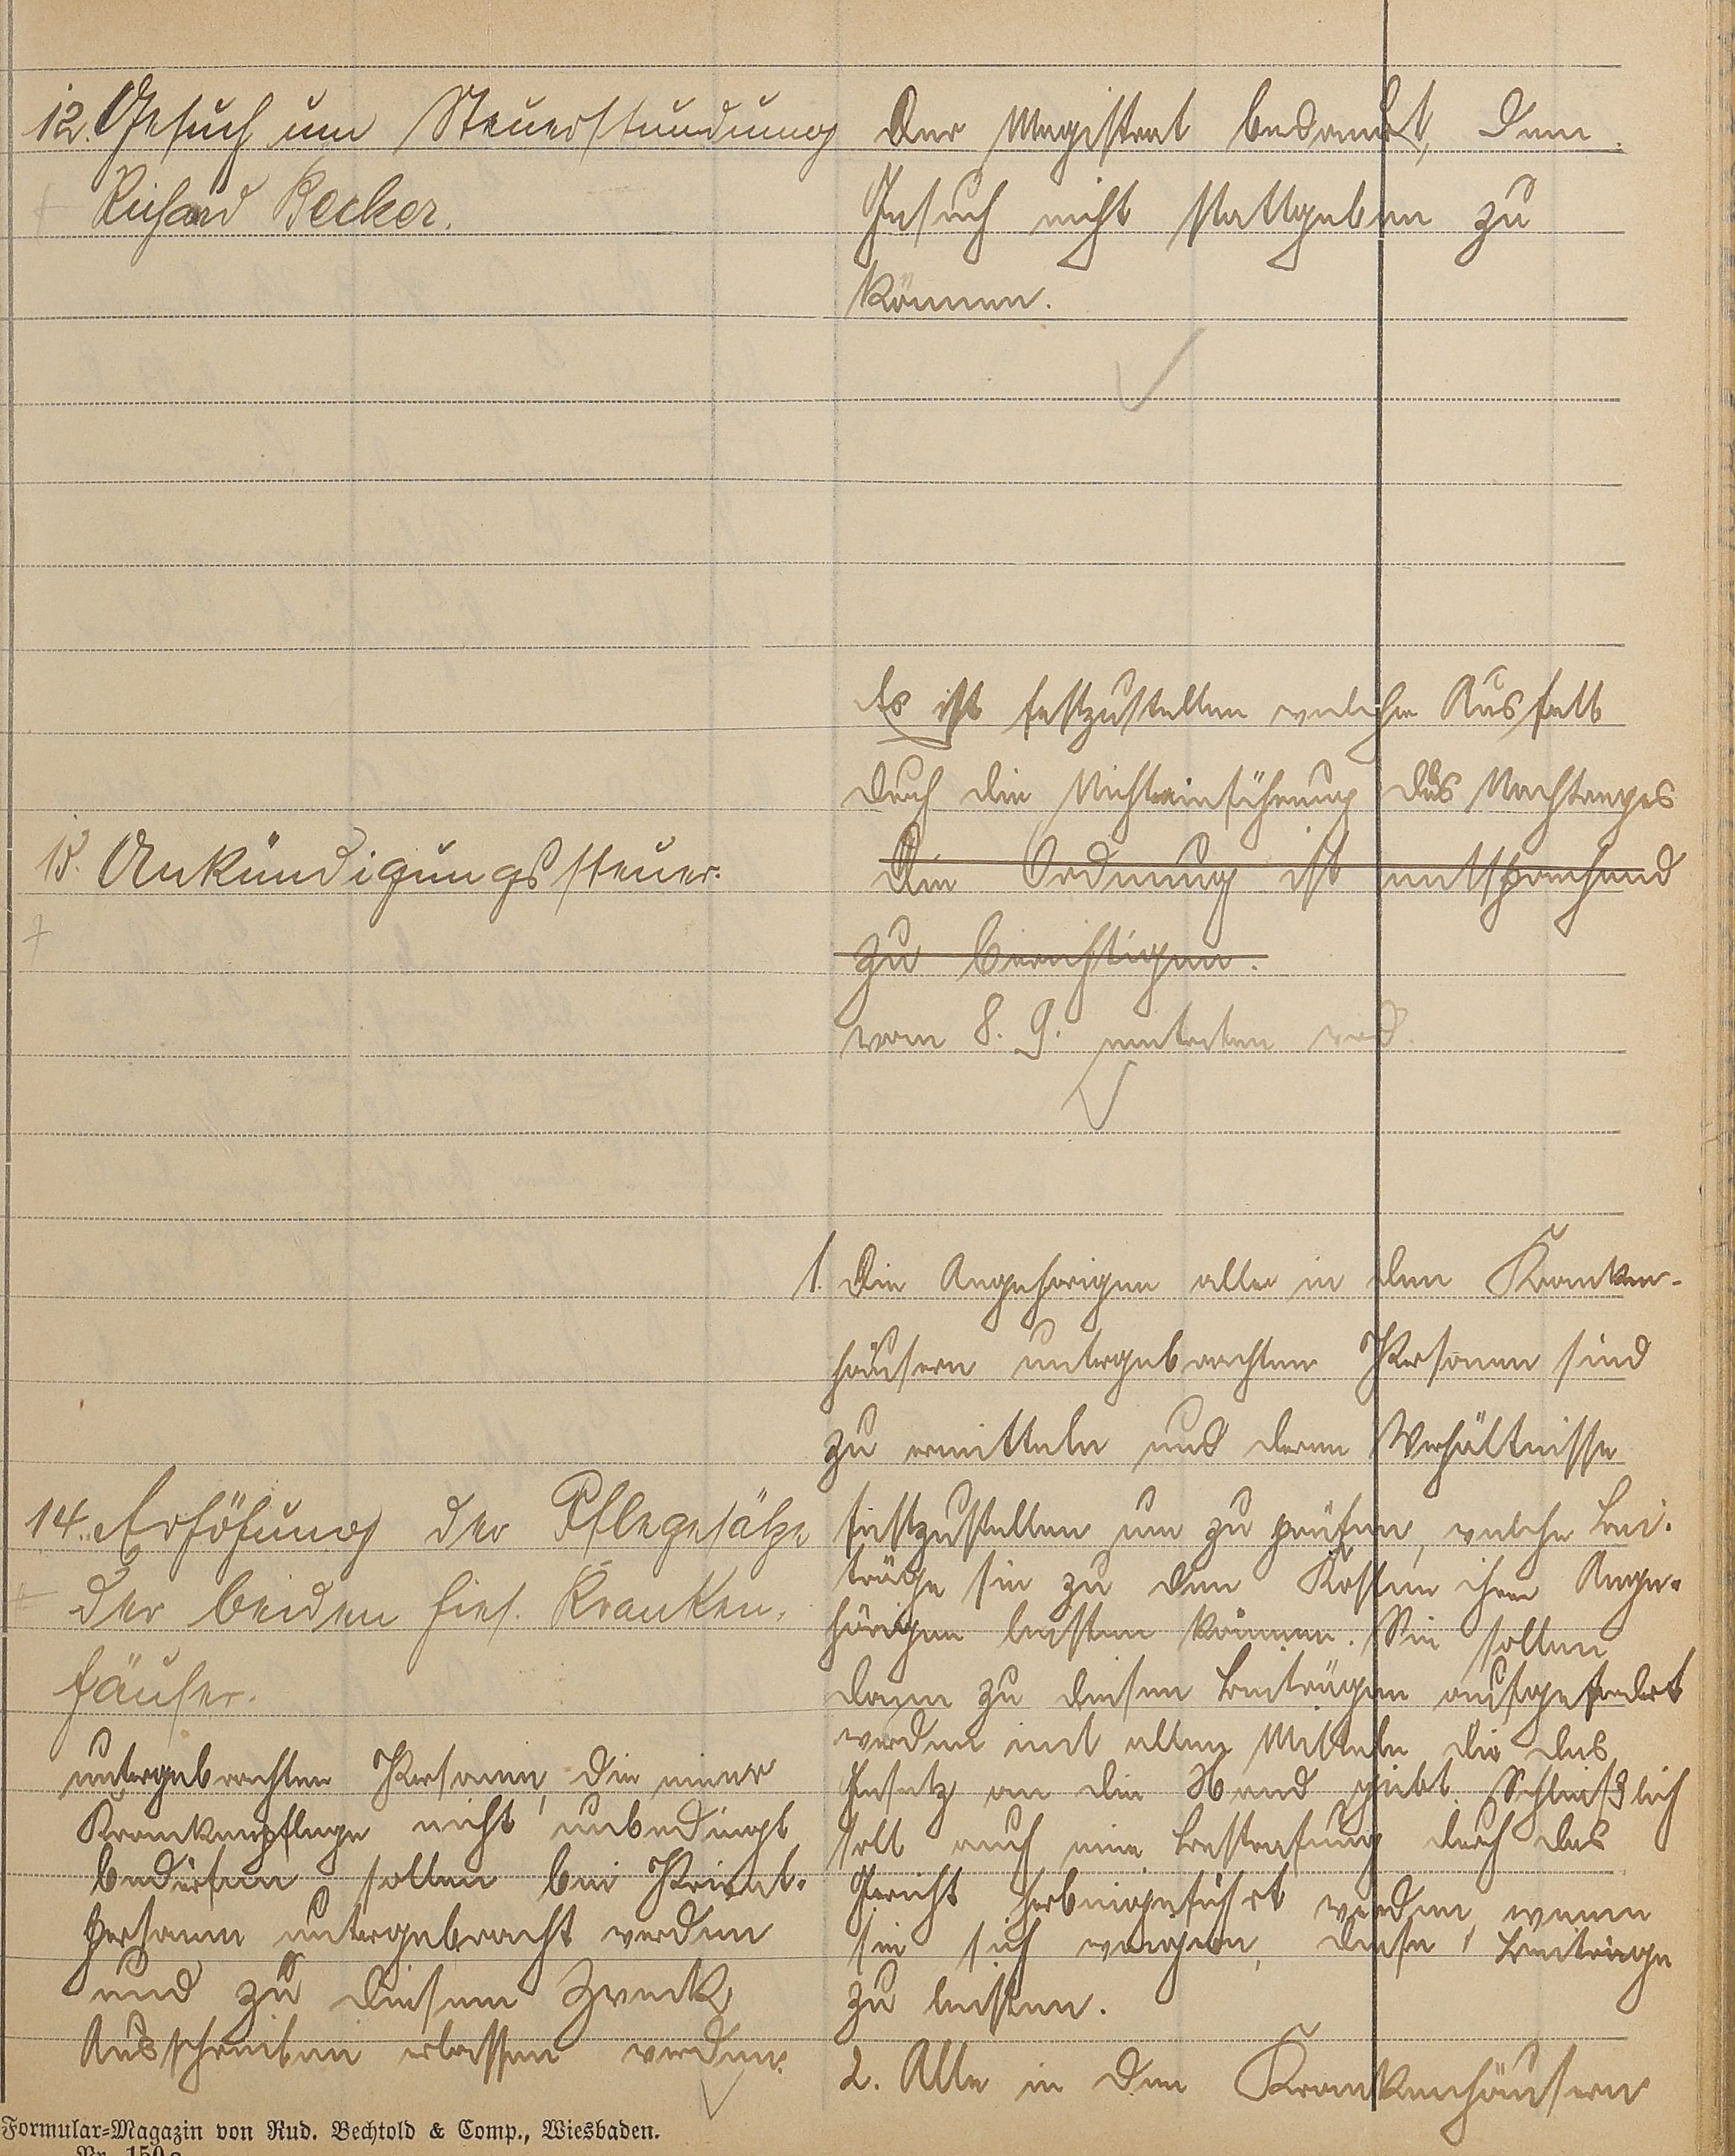 12. Gesuch um Steuerstundung
Richard Becker.
Der Magistrat bedauert, dem
Gesuch nicht stattgeben zu
können.
Es ist festzustellen welcher Ausfall
durch die Nichteinführung des Nachtrages
13. Ankündigungssteuer.
Die Ordnung ist entsprechend
zu berichtigen.
vom 8. 9. eintreten wird.
1. Die Angehörigen aller in den Kranken-
häusern untergebrachten Personen sind
zu ermitteln und deren Verhältnisse
14. Erhöhung der Pflegesätze
der beiden hies. Kranken-
häuser.
festzustellen um zu prüfen, welche Bei-
träge sie zu den Kosten ihrer Ange-
hörigen leisten können. Sie sollen
dann zu diesen Beiträgen aufgefordert
werden mit allen Mitteln die das
Gesetz an die Hand giebt. Schließlich
soll auch eine Bestrafung durch das
Gericht herbeigeführt werden, wenn
sie sich weigern, diese Beiträge
zu leisten.
2. Alle in den Krankenhäusern
untergebrachten Personen, die einer
Krankenpflege nicht unbedingt
bedürfen sollen bei Privat-
personen untergebracht werden
und zu diesem Zweck
Ausschreiben erlassen werden.
Formular-Magazin von Rud. Bechtold & Comp., Wiesbaden.